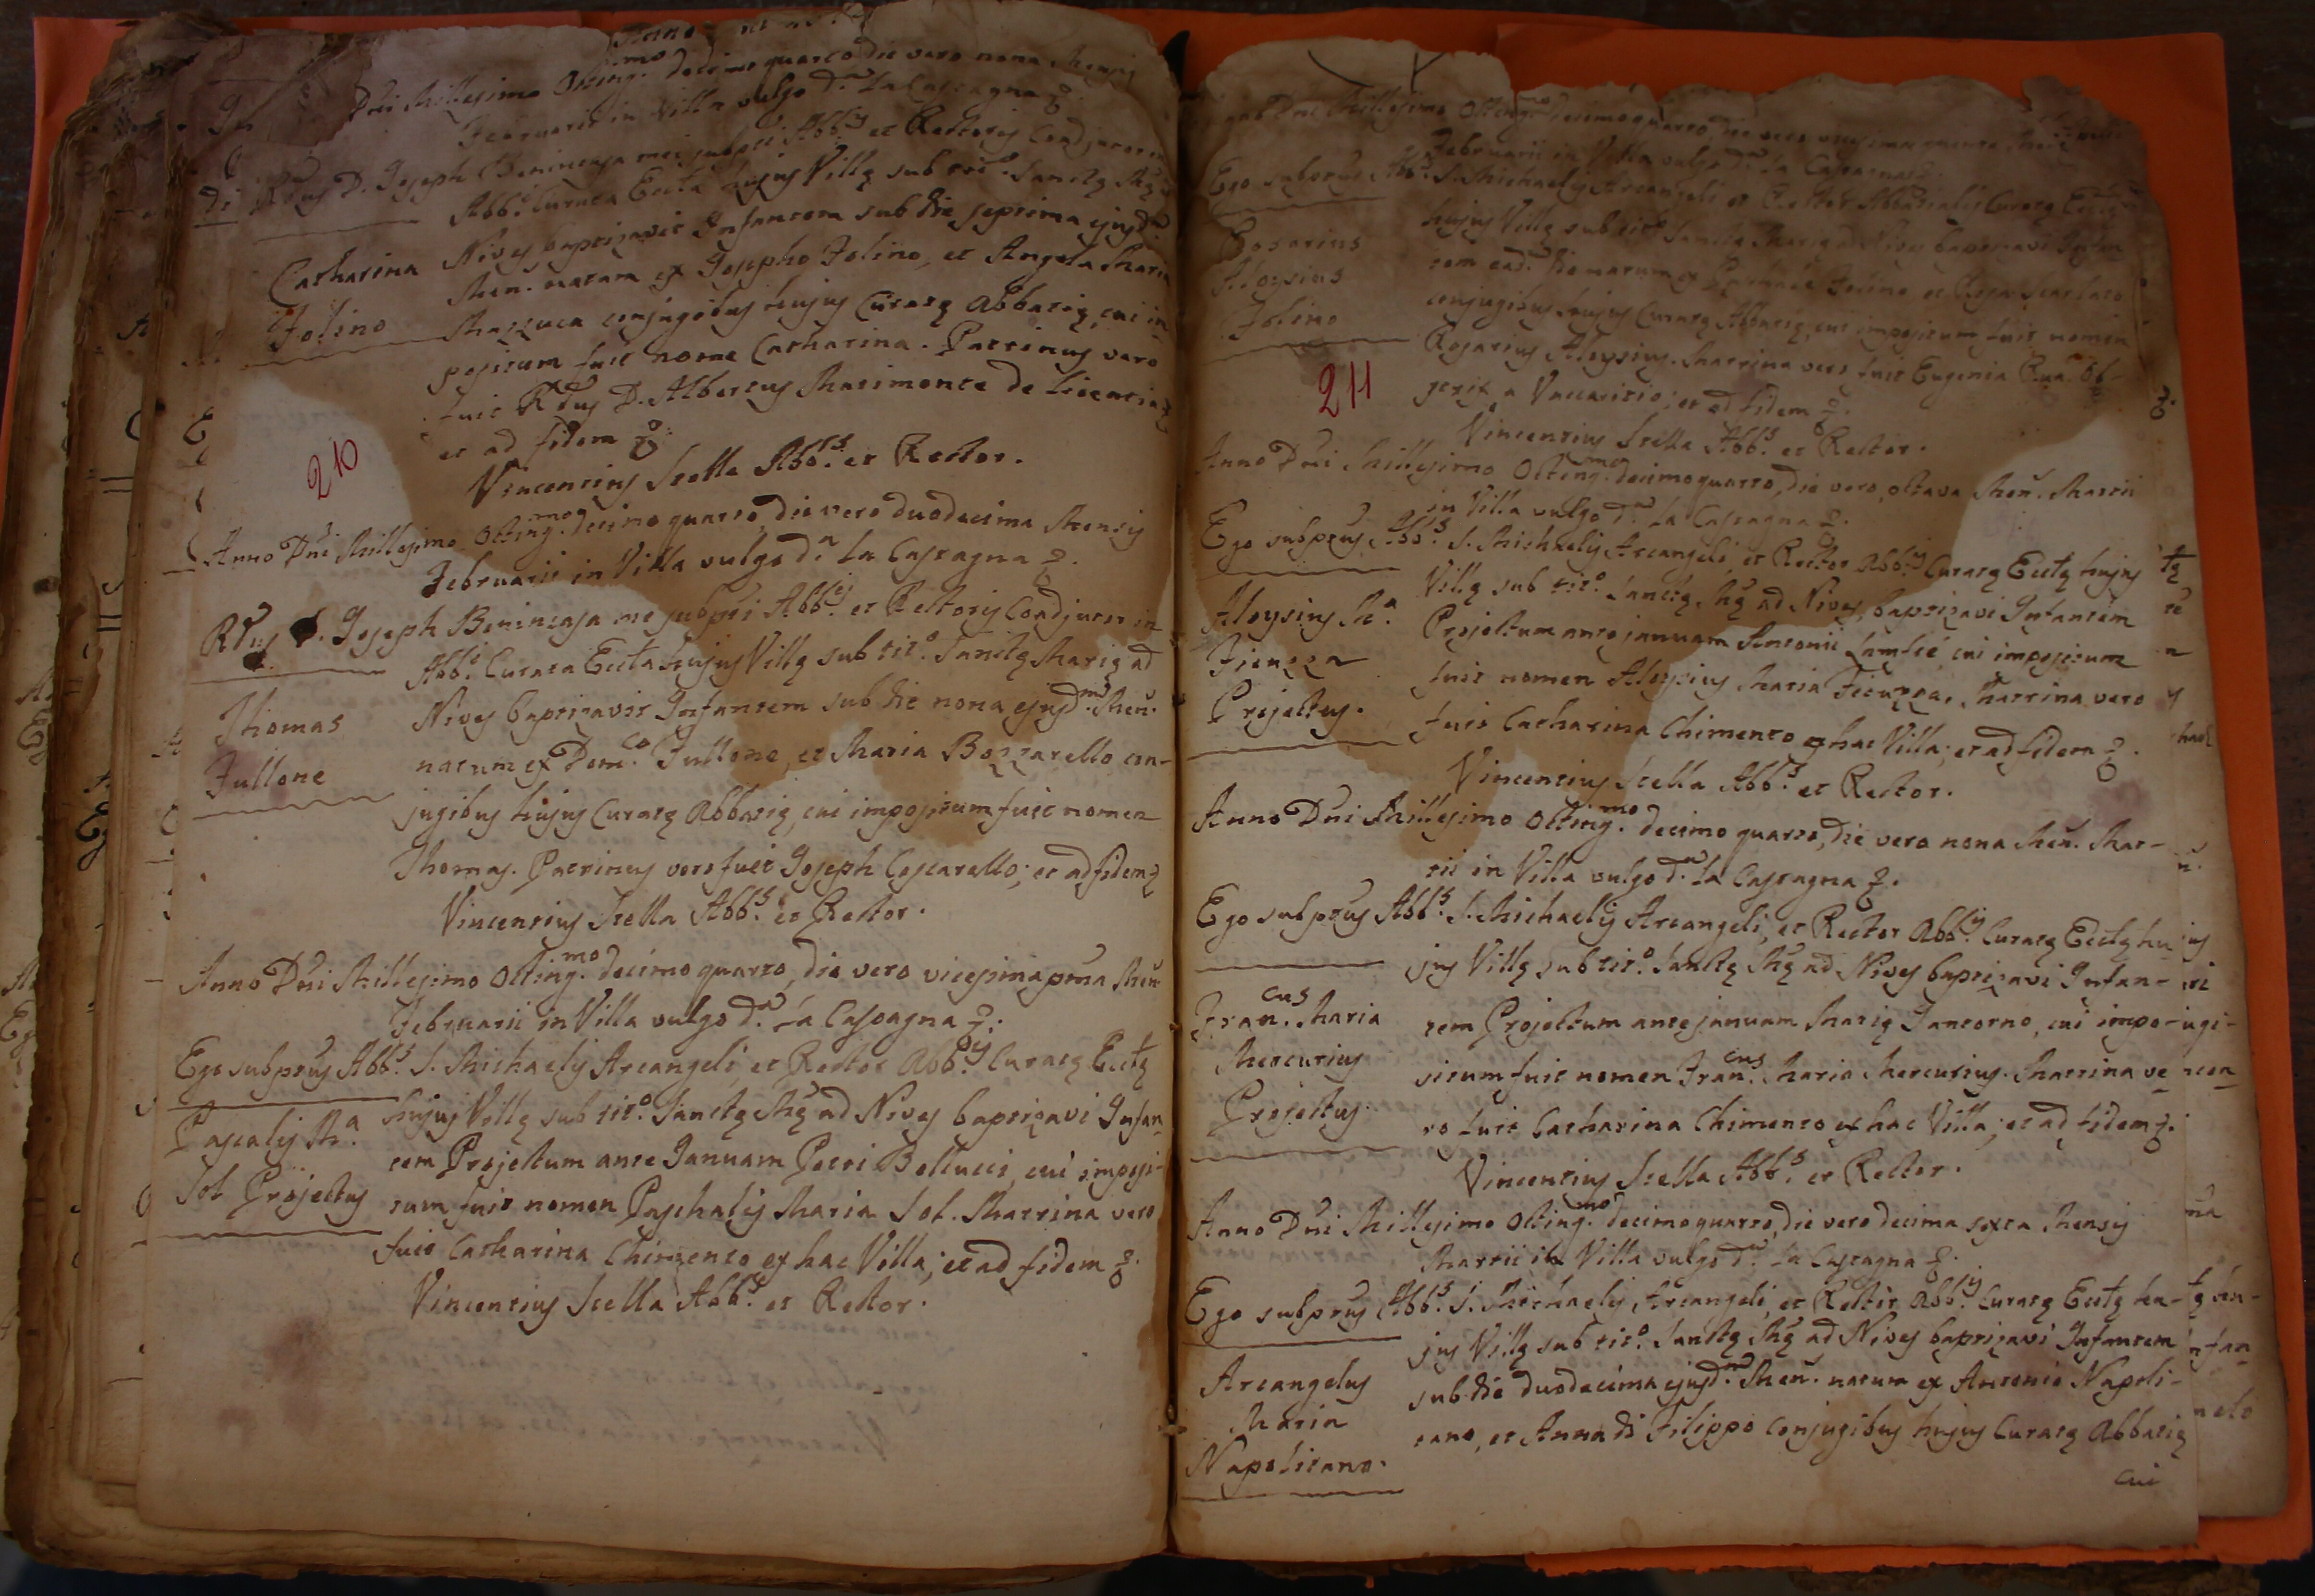 Dni Millesimo Octing.mo decimo quarto die vero nona Mensis
Februarii in Villa vulgo d.a La Castagna &.
Rdus D. Joseph Benincasa mei subpti Abb.is et Rectoris Coadjutor in
Abb.i Curata Eccta hujus Villę sub tit.o Sanctę Mę ad
Nives baptizavit Infantem sub die septima ejusd.m
Catharina
Folino
Men. natam ex Josepho Folino, et Angela Maria
Mazzuca conjugibus hujus Curatę Abbatię, cui im
positum fuit nome Catharina. Patrinus vero
fuit Rdus D. Albertus Marimonte de licentia &
et ad fidem &.
Vincentius Stella Abb.s et Rector.
210
Anno Dni Millesimo Octing.mo decimo quarto, die vero duodecima Mensis
Februarii in Villa vulgo d.a La Castagna &.
Rdus D. Joseph Benincasa me subpti Abb.is et Rectoris Coadjutor in
Abb.i Curata Eccta hujus Villę sub tit.o Sanctę Marię ad
Thomas
Fullone
Nives baptizavit Infantem sub die nona ejusd.m Men.
natum ex Dom.co Fullone, et Maria Bozzarello con-
jugibus hujus Curatę Abbatię, cui impositum fuit nomen
Thomas. Patrinus vero fuit Joseph Costarello; et ad fidem &
Vincentius Stella Abb.s et Rector.
Anno Dni Millesimo Octing.mo decimo quarto, die vero vicesima pma Men
Februarii in Villa vulgo d.a La Castagna &.
Ego subptus Abb.s S. Michaelis Arcangeli, et Rector Abb.is Curatę Ecctę
Pascalis M.a
Sol Projectus
hujus Villę sub tit.o Sanctę Mę ad Nives baptizavi Infan
tem Projectum ante Januam Petri Bellucci, cui imposi-
tum fuit nomen Paschalis Maria Sol. Matrina vero
fuit Catharina Chimento ex hac Villa; et ad fidem &.
Vincentius Stella Abb.s et Rector.
Dni Millesimo Octing.mo decimo quarto, die vero vicesima
Februarii in Villa vulgo d.a La Castagna &.
Ego subptus Abb.s S. Michaelis Arcangeli et Rector Abbatialis Curatę
Rosarius
Aloysius
Folino
hujus Villę sub tit.o Sanctę Marię ad Nives baptizavi Infan
tem ead. die natum ex Folino et
conjugibus hujus Curatę Abbatię, cui impositum fuit nomen
Rosarius Aloysius. Matrina vero fuit Eugenia Ob-
stetrix a et ad fidem &.
Vincentius Stella Abb.s et Rector.
211
Anno Dni Millesimo Octing.mo decimo quarto, die vero octava Men. Martii
in Villa vulgo d.a La Castagna &.
Ego subptus Abb.s S. Michaelis Arcangeli, et Rector Abb.is Curatę Ecctę hujus
Aloysius M.a
Ficuzza
Projectus.
Villę sub tit.o Sanctę Mę ad Nives, baptizavi Infantem
Projectum ante januam Antonii, cui impositum
fuit nomen Aloysius Maria Ficuzza. Matrina vero
fuit Catharina Chimento ex hac Villa; et ad fidem &.
Vincentius Stella Abb.s et Rector.
Anno Dni Millesimo Octing.mo decimo quarto, die vero nona Men. Mar-
tii in Villa vulgo d.a La Castagna &.
Ego subptus Abb.s S. Michaelis Arcangeli, et Rector Abb.is Curatę Ecctę hu
Fran.cus Maria
Mercurius
Projectus.
jus Villę sub tit.o Sanctę Mę ad Nives baptizavi Infan-
tem Projectum ante januam Marię Santorno, cui impo-
situm fuit nomen Fran.cus Maria Mercurius. Matrina ve
ro fuit Catharina Chimento ex hac Villa; et ad fidem &.
Vincentius Stella Abb.s et Rector.
Anno Dni Millesimo Octing.mo decimo quarto, die vero decima sexta Mensis
Martii in Villa vulgo d.a La Castagna &.
Ego subptus Abb.s S. Michaelis Arcangeli, et Rector Abb.is Curatę Ecctę hu-
Arcangelus
Maria
Napolitano.
jus Villę sub tit.o Sanctę Mę ad Nives baptizavi Infantem
sub die duodecima ejusd.m Men. natum ex Antonio Napoli-
tano, et Anna di Filippo conjugibus hujus Curatę Abbatię
cui